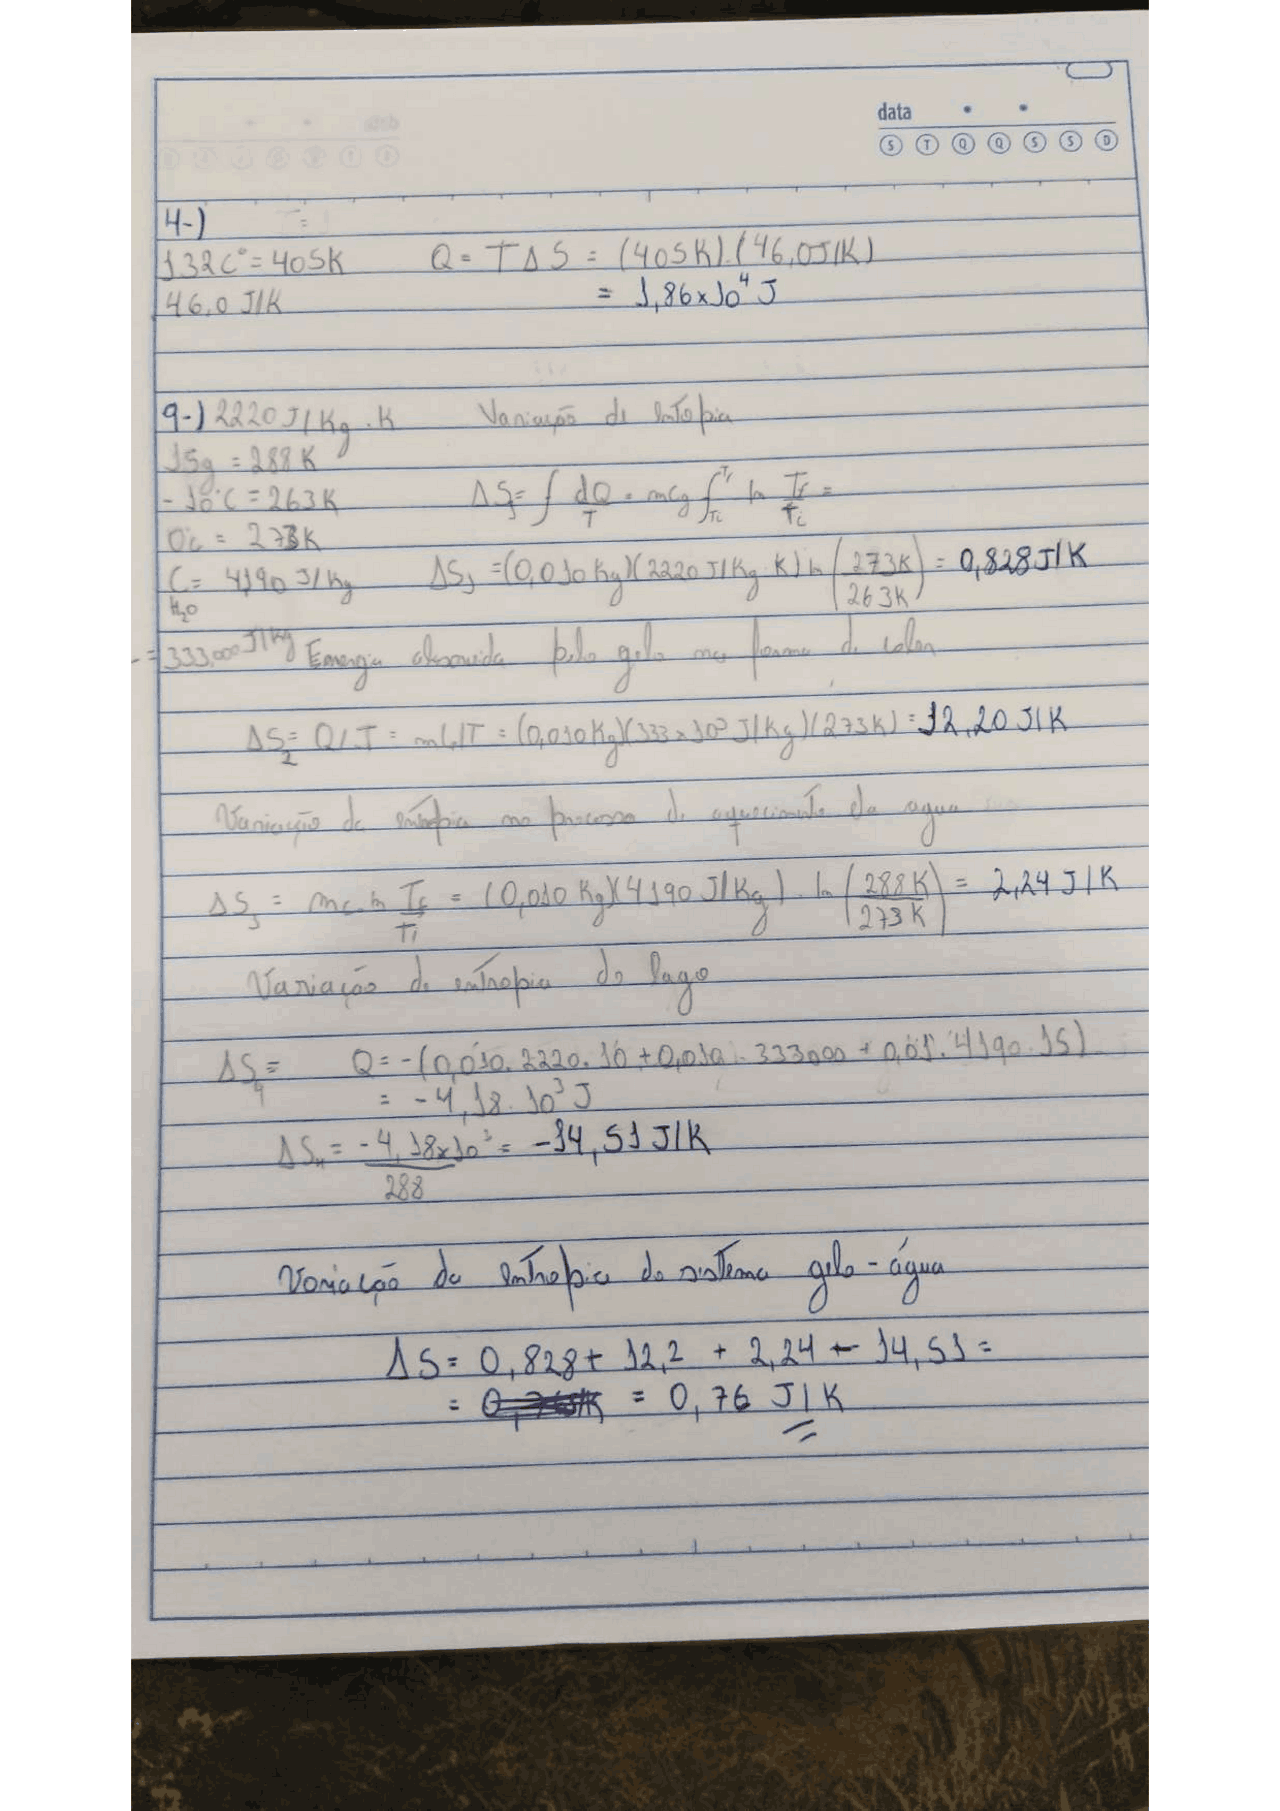 data
S T Q Q S S D
4-)
132C° = 405K Q = TΔS = (405K).(46,0J/K)
46.0 J/K = 1,86x10⁴ J
9-) 2220 J/Kg.K Variação de Entopia
15g = 288K
-10°C = 263K ΔS = ∫ dQ/T = mcg ∫ Ti Tf ln Tf/Ti =
0°c = 273K
C H₂O = 4190 J/Kg ΔS₁ = (0,010 Kg)(2220 J/Kg K) ln (273K/263K) = 0,828 J/K
= 333,000 J/Kg Energia absorvida pelo gelo na forma de calor
ΔS₂ = Q/T = mL/T = (0,010Kg)(333x10³ J/Kg)/(273K) = 12,20 J/K
Variação de entropia no processo de aquecimento da agua
ΔS₃ = mc.ln Tf/Ti = (0,010 Kg)(4190 J/Kg). ln (288K/273K) = 2,24 J/K
Variação de entropia do lago
ΔS₄ = Q = -(0,010. 2220. 10 + 0,010 . 333000 + 0,01. 4190. 15)
= -4,18. 10³ J
ΔS₄ = -4,18x10³/288 = -14,51 J/K
Variação da entropia do sistema gelo-água
ΔS = 0,828 + 12,2 + 2,24 - 14,51 =
= = 0,76 J/K